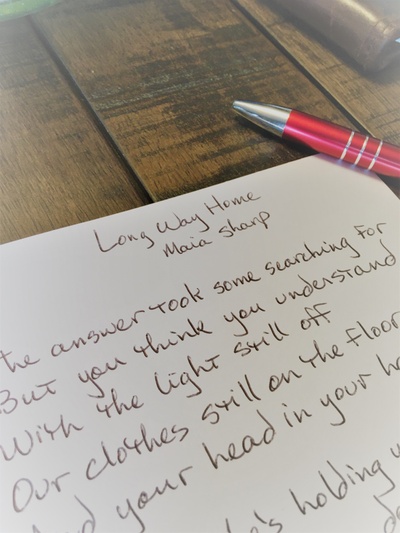 Long Way Home
Maia Sharp
The answer took some searching for
But you think you understand
With the light still off
Our clothes still on the floor
And your head in your
holding